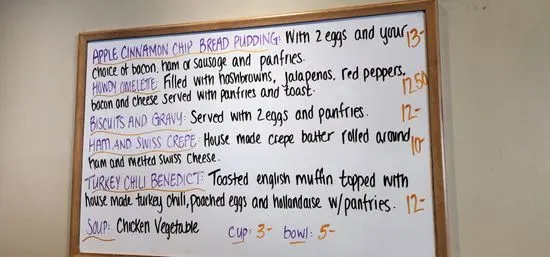 APPLE CINNAMON CHIP BREAD PUDDING: With 2 eggs and your 13-
choice of bacon, ham or sausage and panfries.
HOWDY OMELETTE: Filled with hashbrowns, jalapenos, red peppers,
bacon and cheese served with panfries and toast. 12.50
BISCUITS AND GRAVY: Served with 2 eggs and panfries. 12-
HAM AND SWISS CREPE: House made crepe batter rolled around 10-
ham and melted swiss cheese.
TURKEY CHILI BENEDICT: Toasted english muffin topped with
house made turkey chili, poached eggs and hollandaise w/panfries. 12-
SOUP: Chicken Vegetable cup: 3- bowl: 5-